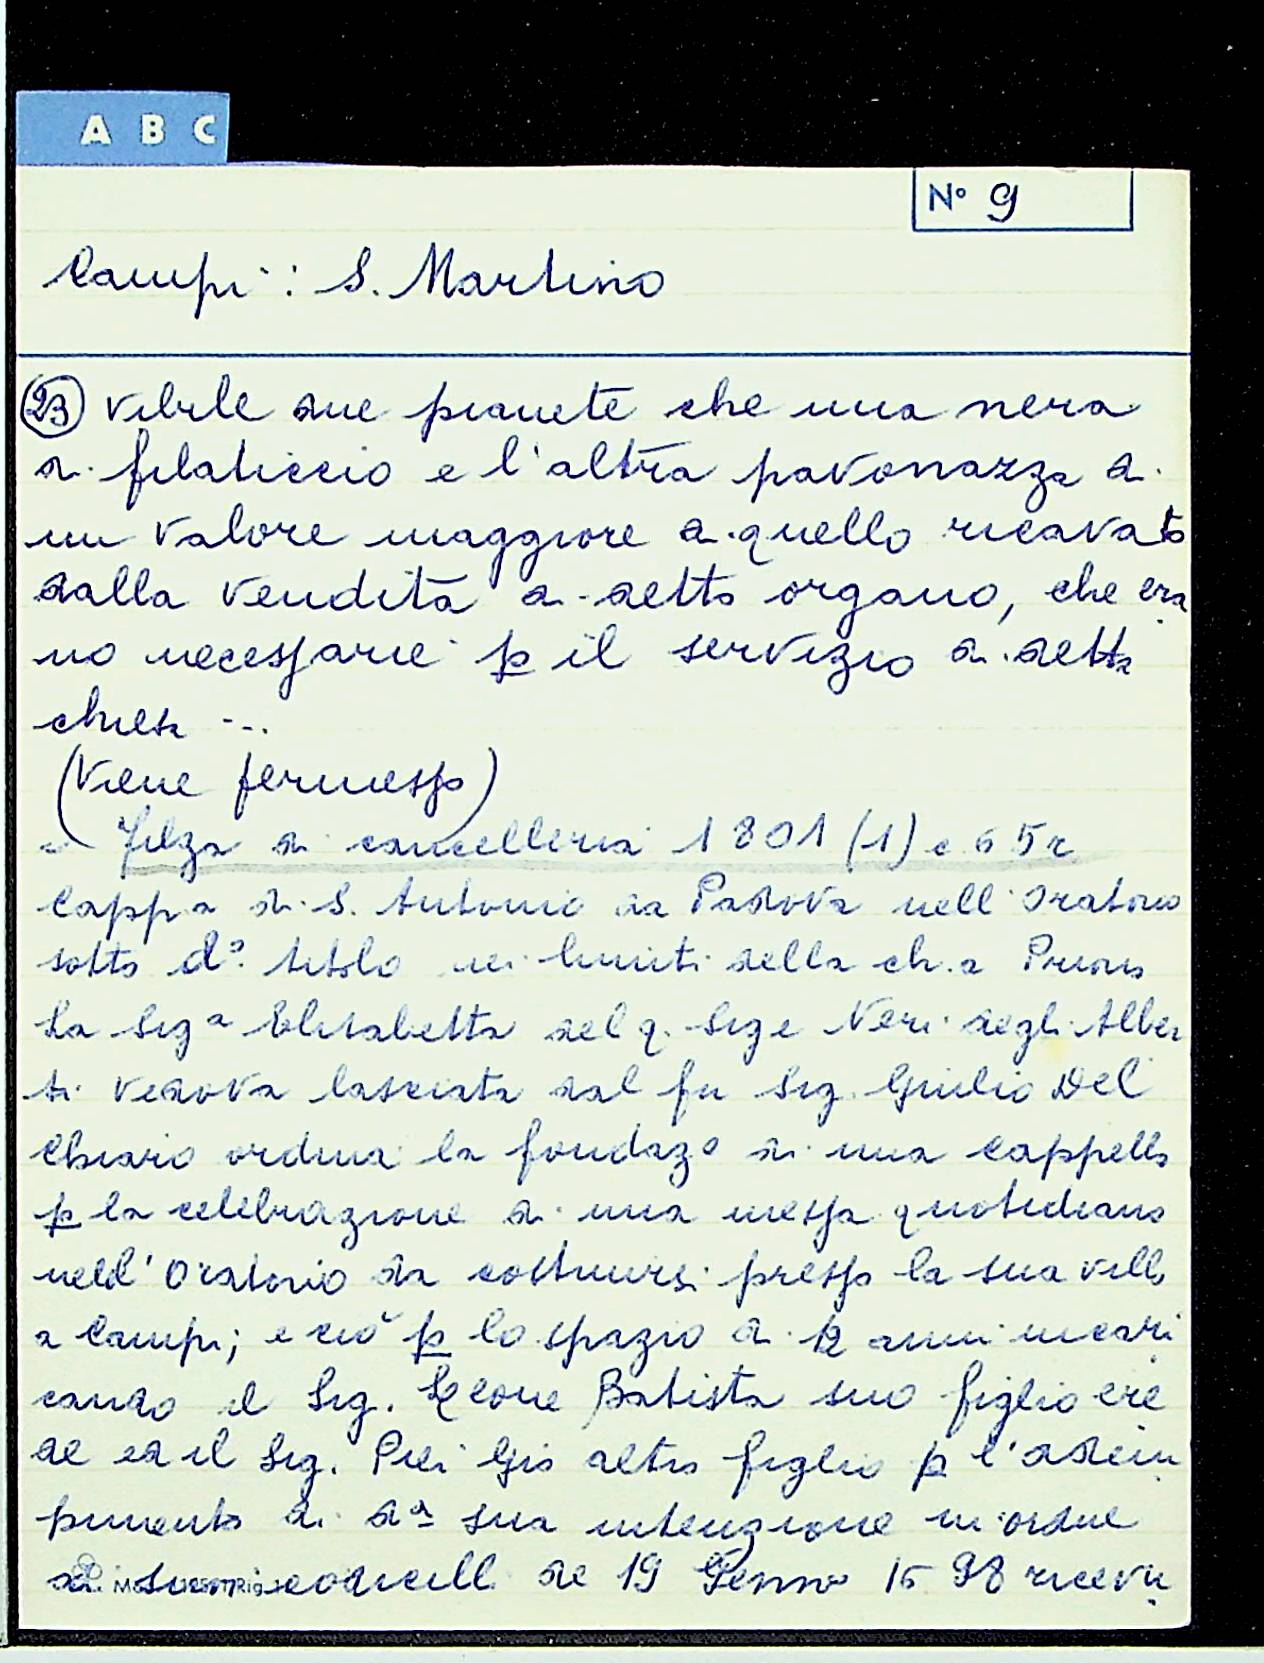 A B C
N° 9
Campi: S. Martino
23 vibile due pianete che una nera
di filaticcio e l'altra pavonazza di
un valore maggiore di quello ricavato
dalla vendita di detto organo, che era
no necessarie p il servizio di detta
chiesa ...
(viene permesso)
Filza di cancelleria 1801 (1) c 65r
Cappa di S. Antonio da Padova nell'Oratorio
sotto d° titolo nei limiti della ch.a Prioria
La Sig.a Elisabetta del q. Sig.e Neri degli Alber
ti vedova lasciata dal fu Sig. Giulio Del
Chiaro ordina la fondaz.e di una cappella
p la celebrazione di una messa quotidiana
nell'Oratorio da costruirsi presso la sua villa
a Campi; e ciò p lo spazio di 12 anni incari
cando il Sig. Leone Batista suo figlio ere
de ed il Sig. Pier Gio altro figlio p l'adem
pimento di d.a sua intenzione in ordine
ai suoi codicilli de 19 Genno 1598 ricevu